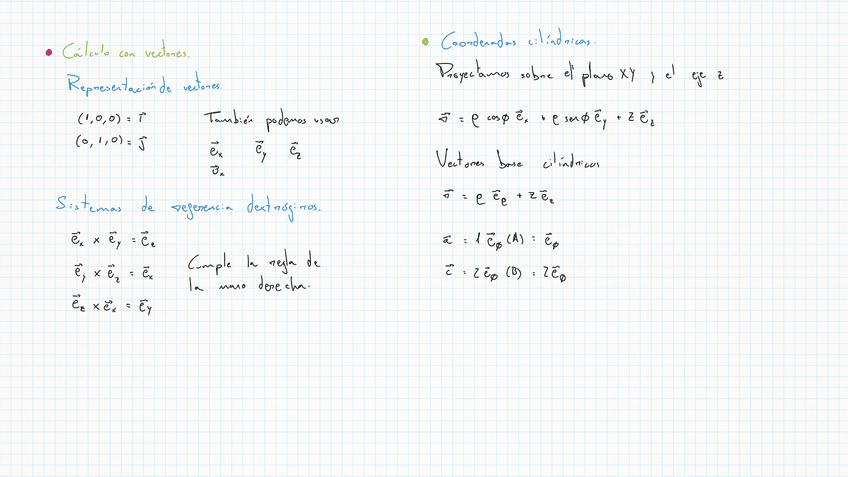 Cálculo con vectores.
Representación de vectores.
(1,0,0) = i⃗
(0,1,0) = j⃗
También podemos usar
e⃗x e⃗y e⃗z
u⃗x
Sistemas de referencia dextrógiros.
e⃗x × e⃗y = e⃗z
e⃗y × e⃗z = e⃗x
e⃗z × e⃗x = e⃗y
Cumple la regla de
la mano derecha.
Coordenadas cilíndricas.
Proyectamos sobre el plano XY y el eje z
r⃗ = ρ cosϕ e⃗x + ρ senϕ e⃗y + z e⃗z
Vectores base cilíndricos
r⃗ = ρ e⃗ρ + z e⃗z
a⃗ = 1 e⃗ϕ (A) = e⃗ϕ
c⃗ = 2 e⃗ϕ (B) = 2 e⃗ϕ